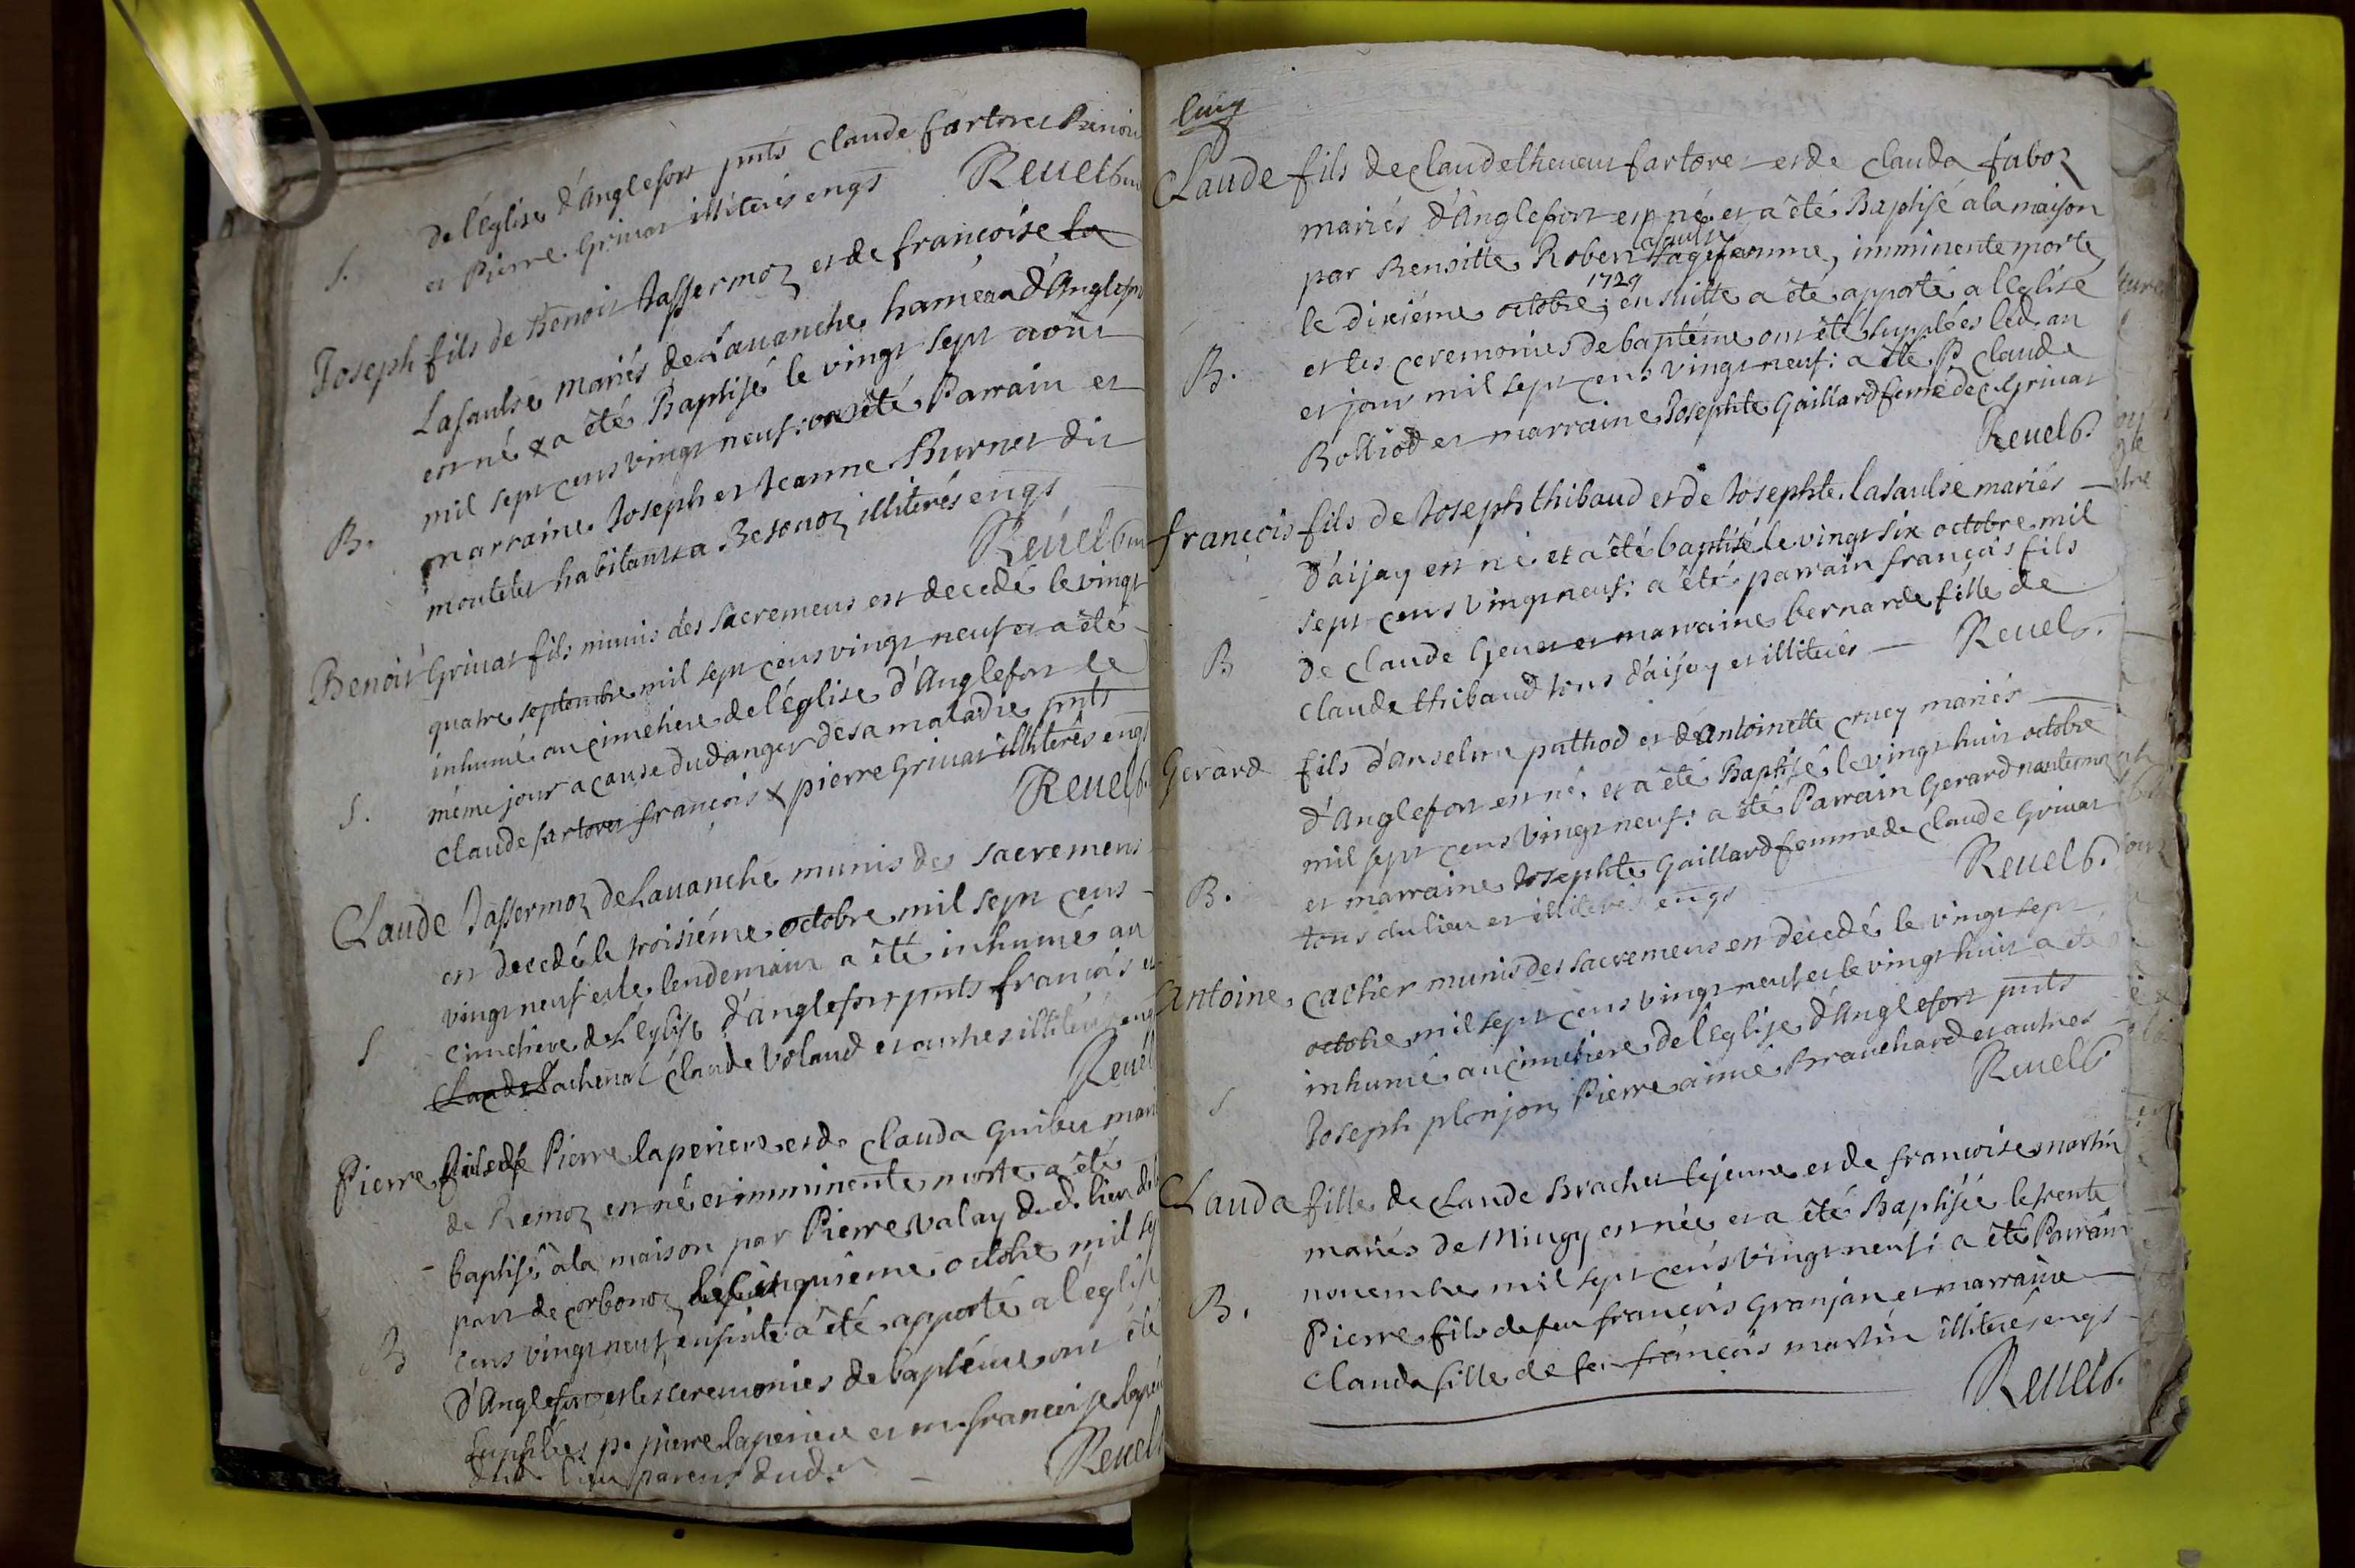 de l'Eglise d'Anglefort pnts Claude fartoret Benoit
S. et Pierre Grivat illiterés engs Revel c
Joseph fils de Benoit Jassermoz et de francoise la
Lasaulse mariés de Lavanche hameau d'Anglefort
est né & a été Baptisé le vingt sept août
mil sept cens vingt neuf: ont été Parrain et
B. marraine Joseph et Jeanne Burnet dit
moutetet habitants a Besonoz illiterés engs
Revel c
Benoit Grivat fils munis des sacremens est decedé le vingt
quatre septembre mil sept cens vingt neuf et a été
inhumé au cimetiere de l'église d'Anglefort le
S. même jour a cause du danger de sa maladie pnts
Claude fartoret françois & pierre Grivat illiterés engs
Revel c.
Claude Jassermoz de Lavanche munis des sacremens
est decedé le troisiéme octobre mil sept cens
vingt neuf et le lendemain a été inhumé au
S cimetiere de l'Eglise d'anglefort pnts francois et
Claude Lachenal Claude Volaud et autres illiterés engs
Revel
Pierre fils de Pierre laperiere et de Clauda Guibet mariés
de Remoz est né et imminente morte a été
baptisé à la maison par Pierre Valay dud. lieu
part de Corbonoz le cinquiéme octobre mil sept
B cens vingt neuf ensuite a été apporté a l'église
d'Anglefort et les ceremonies de baptéme ont été
supplées p. pierre laperiere et m. francoise laperiere
dud. lieu parens dud.
Revel
Claude fils de Claude lheureux fartoret et de Clauda faboz
mariés d'Anglefort est né et a été Baptisé a la maison
par Benoitte Robert Lasaulse sagefemme, imminente morte,
le dixiéme octobre 1729 ; en suitte a été apporté a l'Eglise
B. et les ceremonies de baptéme ont été supplées led. an
et jour mil sept cens vingt neuf: a été P. Claude
Bolliod et marraine Josephte Gaillard feme de C. Grivat
Revel c.
françois fils de Joseph thibaud et de Josephte lasaulse mariés
d'aijoy est né et a été baptisé le vingt six octobre mil
sept cens vingt neuf: a été parrain françois fils
B de Claude Genet et marraine bernarde fille de
Claude thibaud tous d'aijoy et illiterés — Revel c.
Gerard fils d'Anselme puthod et d'Antoinette cruey mariés
d'Anglefort est né, et a été Baptisé le vingt huit octobre
mil sept cens vingt neuf: a été Parrain Gerard nantermoz
B. et marraine Josephte Gaillard femme de Claude Grivat
tous du lieu et illiterés engs Revel c.
Antoine cachier munis des sacremens est decedé le vingt sept
octobre mil sept cens vingt neuf et le vingt huit a été
inhumé au cimetiere de l'Eglise d'Anglefort pnts
S Joseph plonjon, Pierre aimé Branchard et autres
Revel c
Clauda fille de Claude Brachet le jeune et de francoise martin
mariés de Mingy est née et a été Baptisée le trente
novembre mil sept cens vingt neuf: a été Parrain
B. Pierre fils de feu francois Granjan et marraine
Clauda fille de feu françois martin illiterés engs
Revel c.